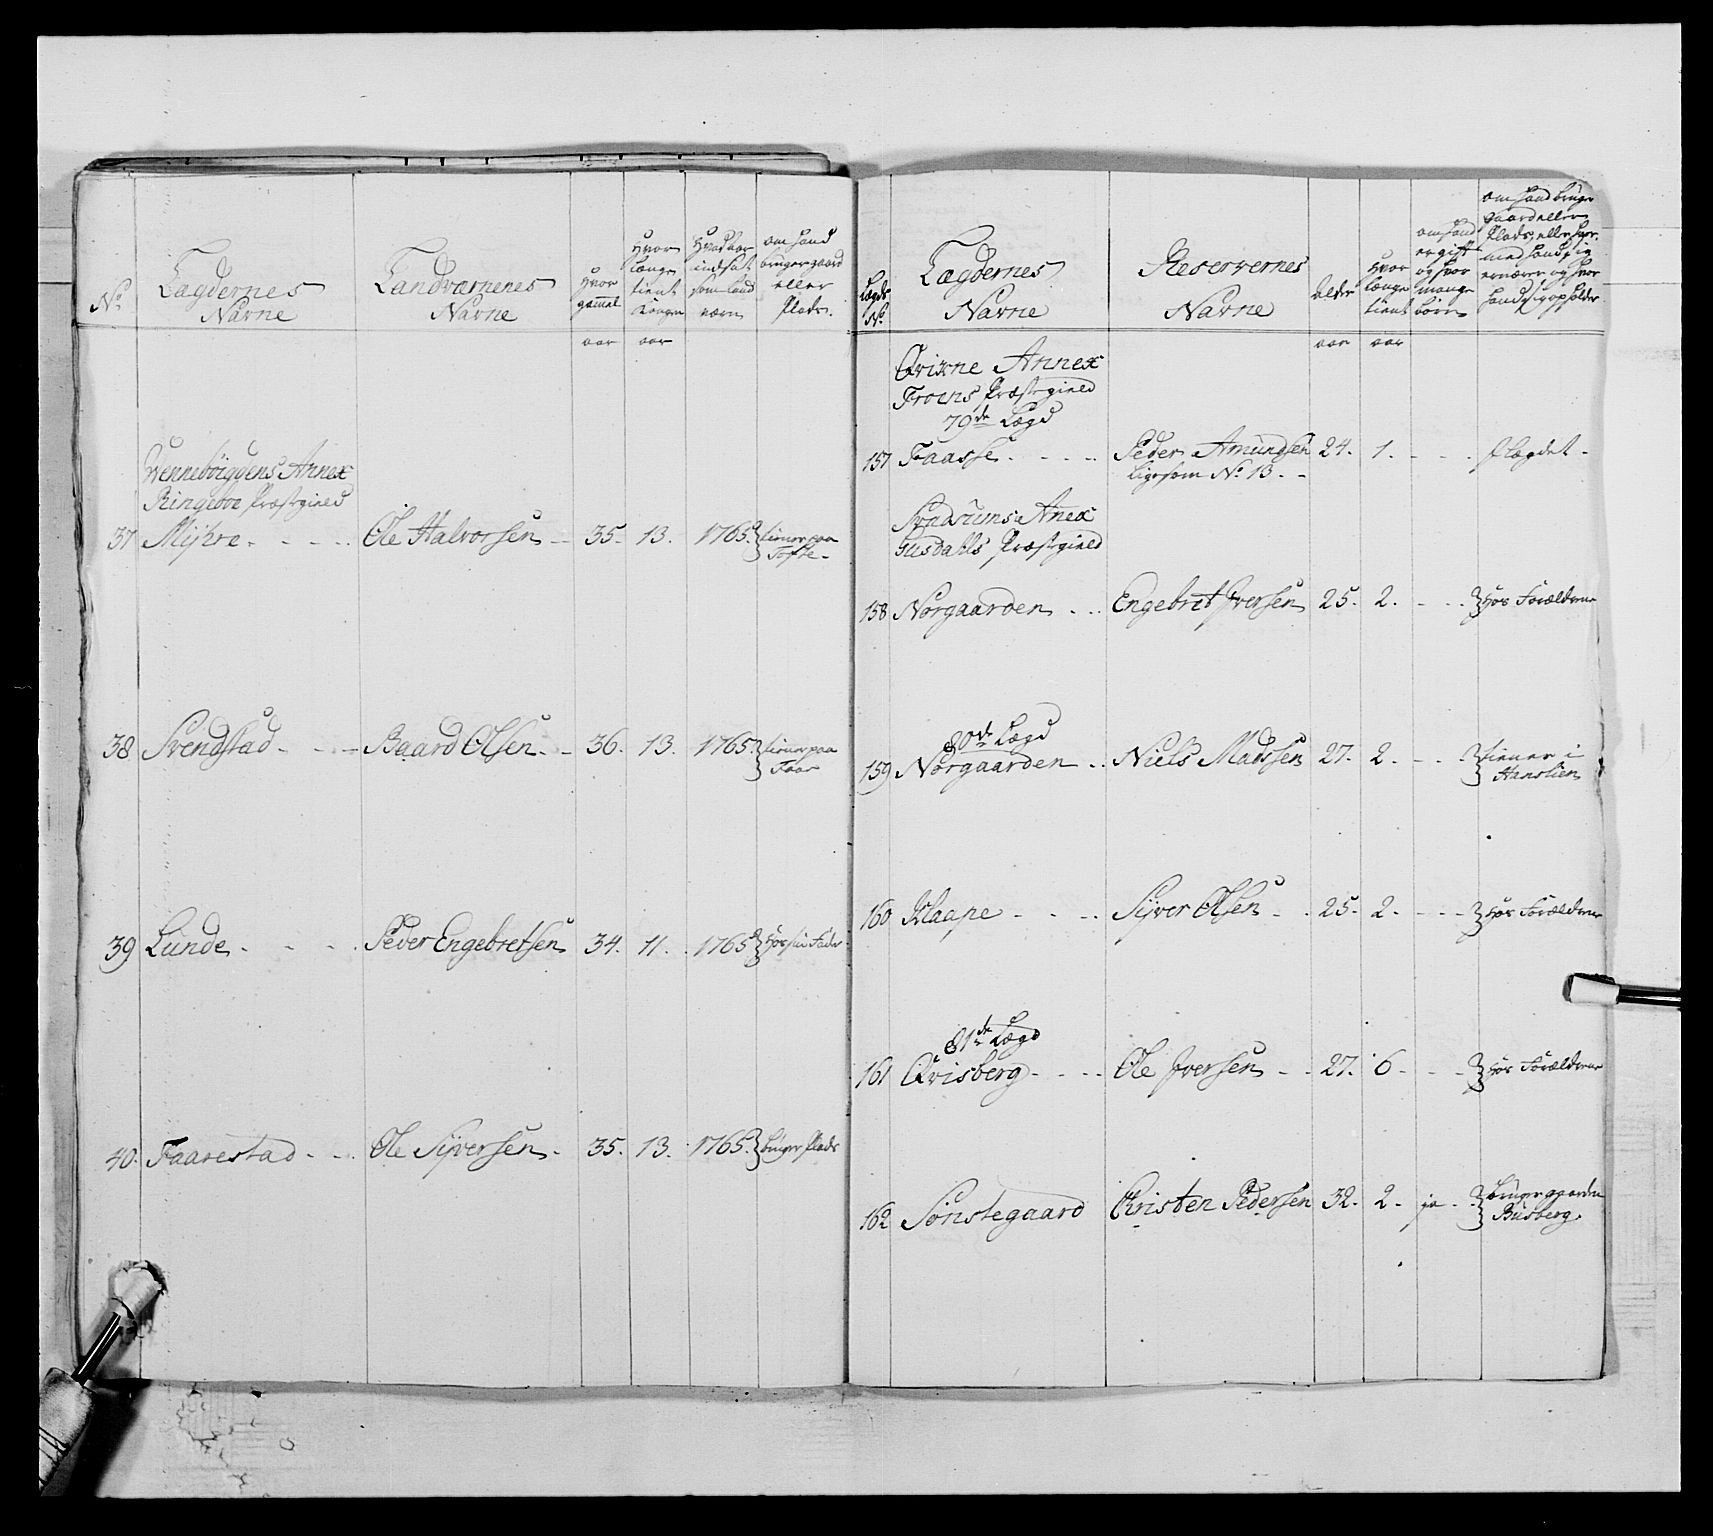 No.
Lægdernes
Navne
Landværnenes
Navne
Hvor
gammel
Hvor
længe
tient
Kongen
Hvad aar
indsat
som Land
værn
om hand
bruger gaard
eller
Plads.
aar aar
Wennebøigdens Annex
Ringeboe Præstegield
37 Mijhre - - - Ole Halvorsen - 35. 13. 1765. tiener paa
Tofte -
38 Svendstad - - - Baard Olsen - - 36. 13. 1765. tiener paa
Faar
39 Lunde - - - Peder Engebretsen 34. 11. 1765. hos sin Fader
40. Faarestad - - - Ole Sijversen - 35. 13. 1765. bruger Plads
Lægds
No.
Lægdernes
Navne
Reservernes
Navne
Alder
Hvor
længe
tient
om hand
er gift
og hvor
mange
børn
om hand bruger
Gaard eller
Plads, eller hvor
med hand sig
ernærer og hvor
hand sig opholder
aar aar
Qvixne Annex
Froens Præstgield
79de Lægd
157 Faasse - - - Peder Amundsen 24. 1. - - -
ligesom No. 13 - -
Annex
Præstgield
158 Norgaarden - - Engebret Iversen 25. 2. - - - hos Forældrene
80de Lægd
159 Norgaarden - - Niels Madssen 27. 2. - - - tiener i
Hanslien
160 Klaape - - - Sijver Olsen - - 25. 2. - - - hos Forældrene
81de Lægd
161 Qvisberg - - - Ole Iversen - - 27. 6. - - - hos Forældrene
162 Sønstegaard Christen Pedersen 32. 2. ja - - bruger gaarden
Biisberg.